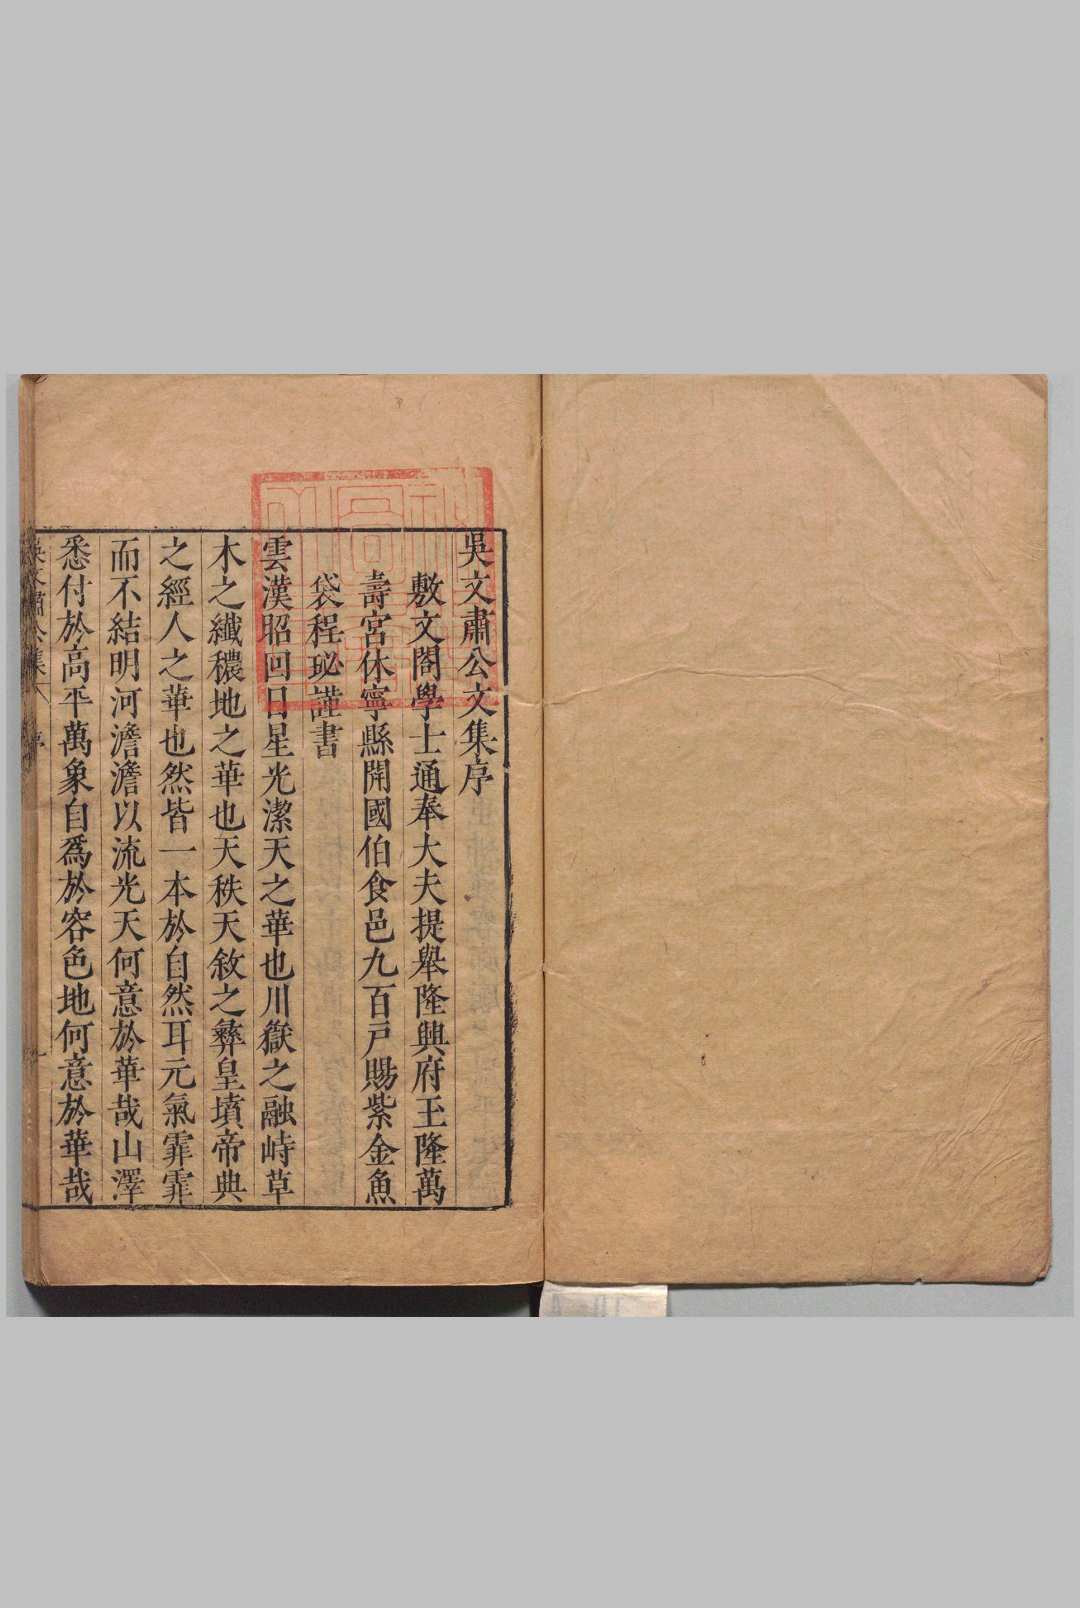 吳文肅公文集序
敷文閣學士通奉大夫提舉隆興府玉隆萬
壽宮休寧縣開國伯食邑九百戸賜紫金魚
袋程珌謹書
雲漢昭回日星光潔天之華也川嶽之融峙草
木之纖穠地之華也天秩天敘之彝皇墳帝典
之經人之華也然皆一本於自然耳元氣霏霏
而不結明河澹澹以流光天何意於華哉山澤
悉付於高平萬象自爲於容色地何意於華哉
吳文肅公集 序